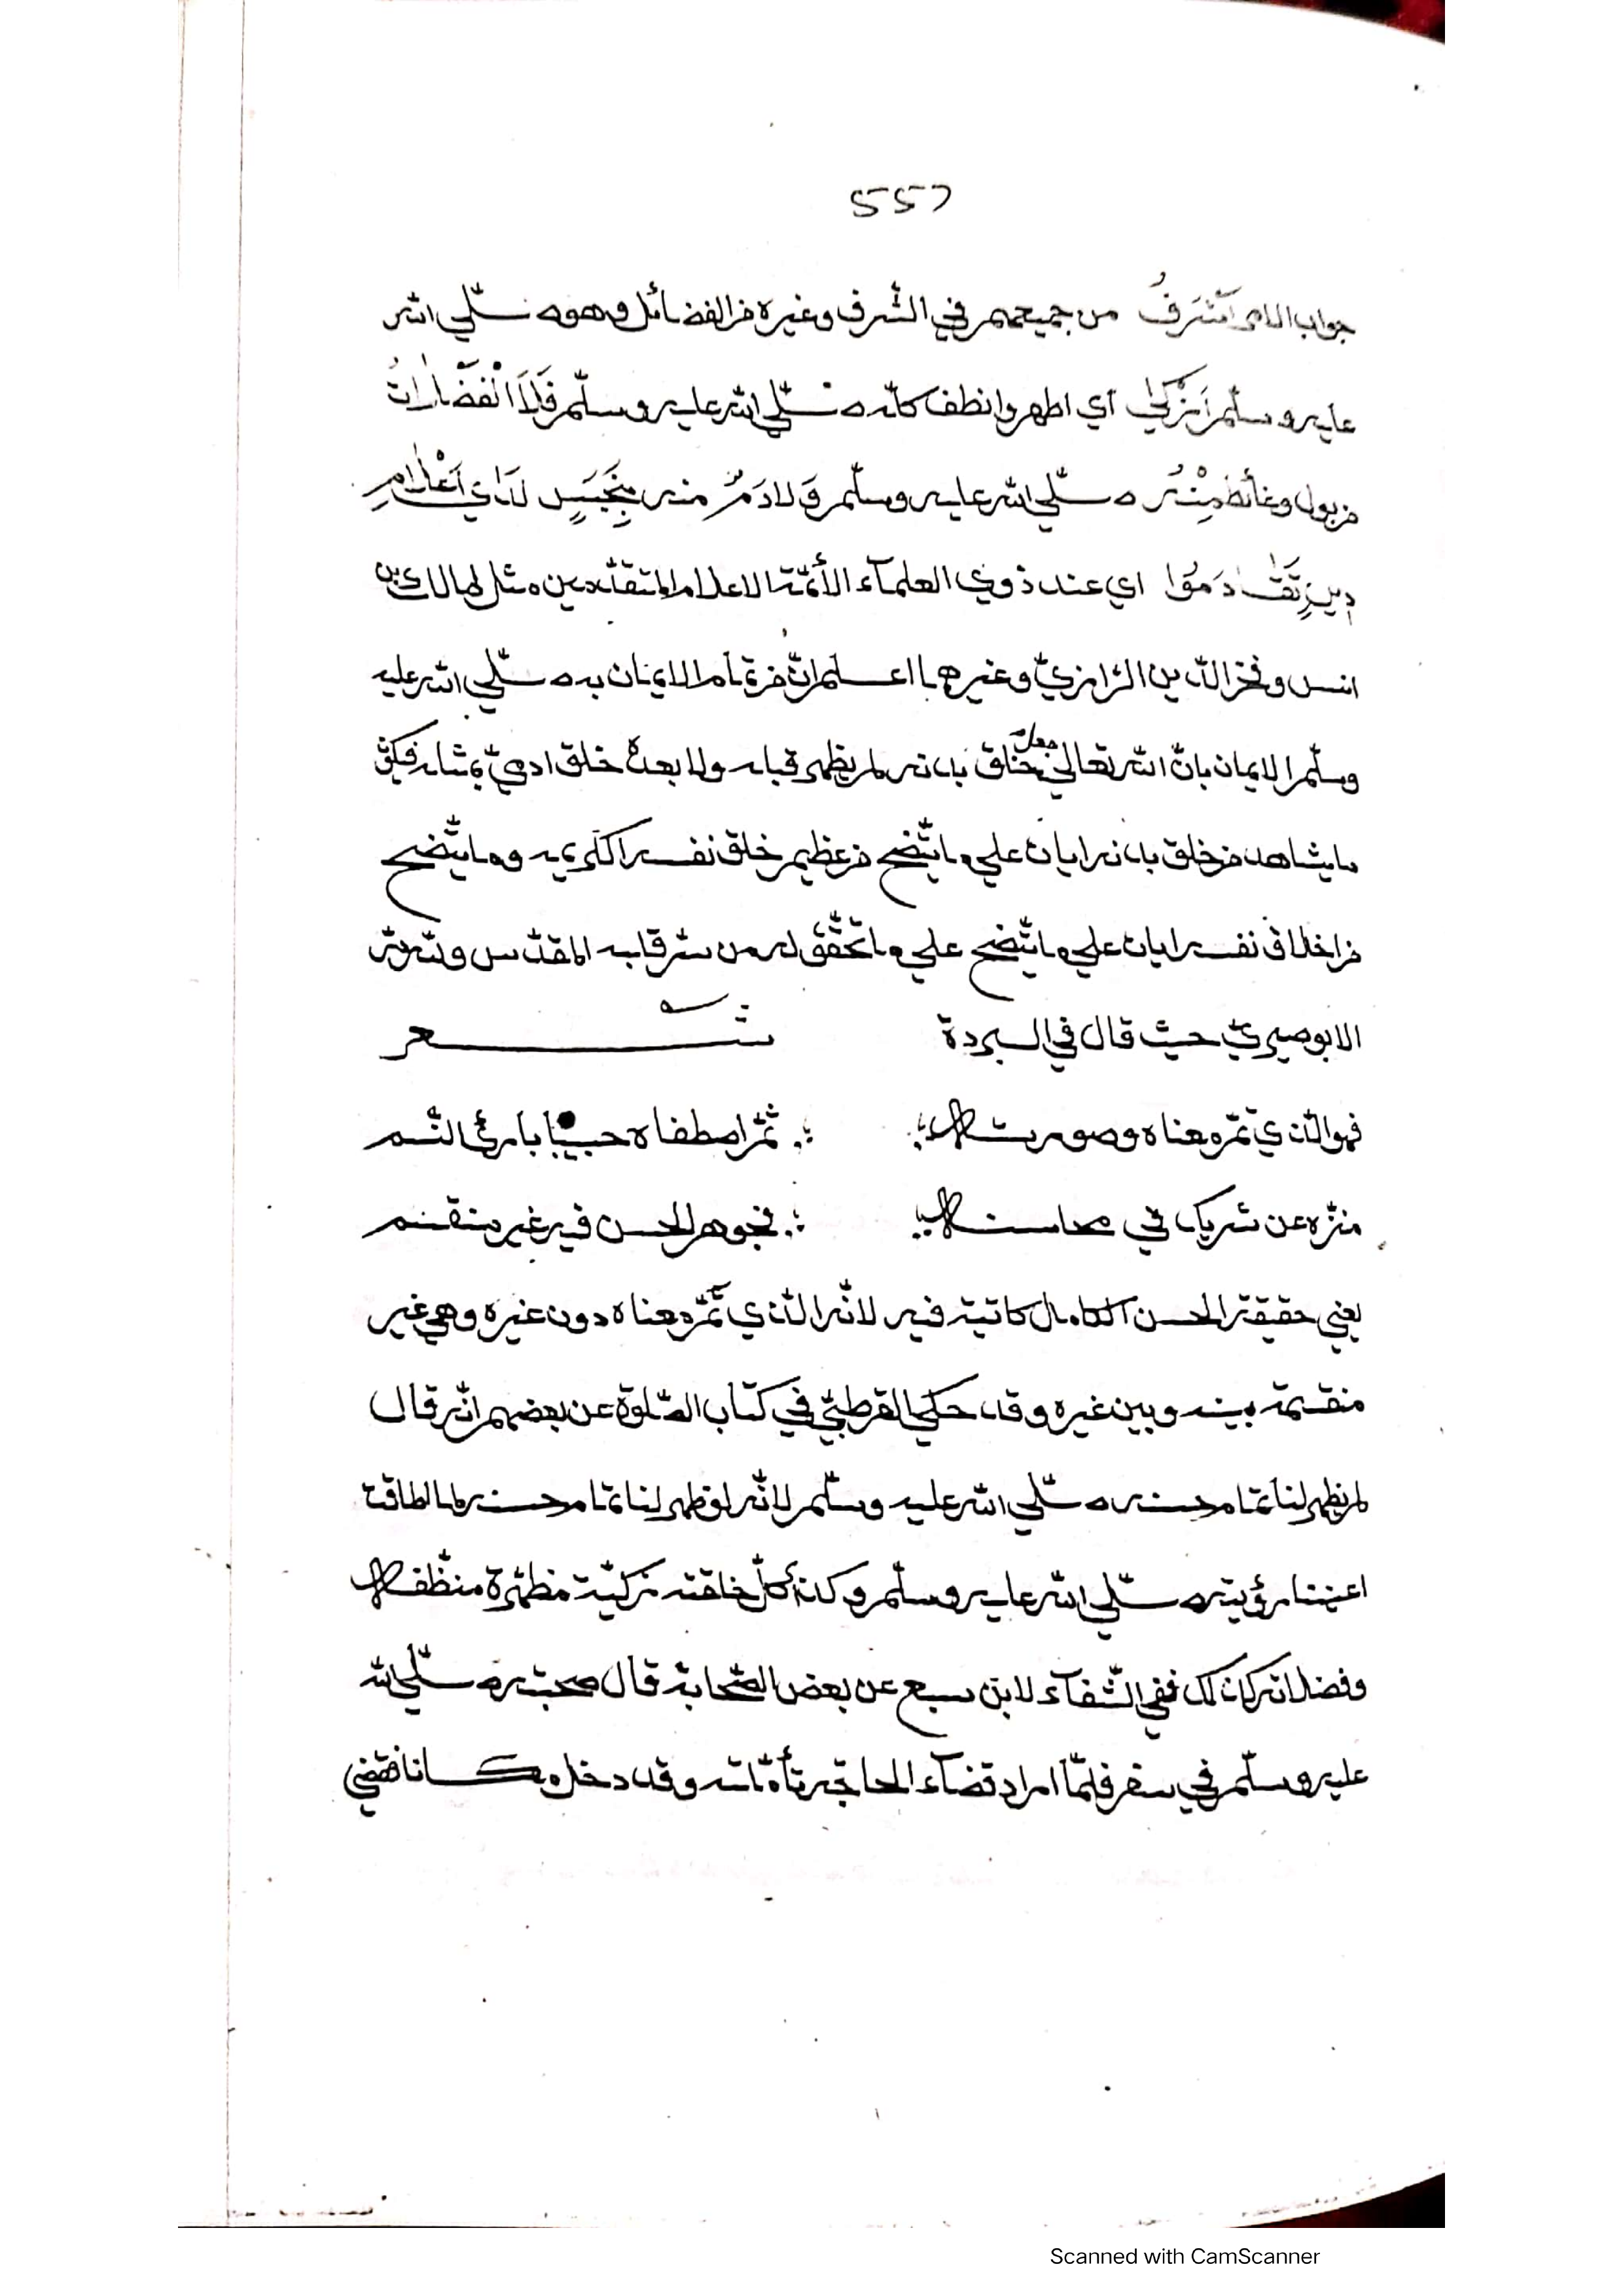 ٢٥٥
جواب الامر اَشْرَفُ من جميعهم في الشّرف وغيره من الفضائل وهو صلّي الله
عليه وسلّم اَزْكَى اي اطهر وانظف كلّه صلّي الله عليه وسلّم فَلَا الْفَضَلَاتُ
من بول وغائط مِنْهُ صلّي الله عليه وسلّم وَلَا دَمٌ منه بِنَجَسٍ لَدَي اَعْلَامِ
دِينٍ تَقَادَمُوْا اي عند ذوي العلمآء الأئمّة الاعلام المتقدّمين مثل مالك بن
انس وفخر الدّين الرّازيّ وغيرهما اعلم انّ من تمام الايمان به صلّي الله عليه
وسلّم الايمان بانّ الله تعالي جعل خلق بدنه لم يظهر قبله ولا بعده خلق ادميّ بمثله فيكون
ما يشاهد من خلق بدنه ايات علي ما يتّضح من عظيم خلق نفسه الكريمه وما يتّضح
من اخلاق نفسه ايات علي ما يتّضح علي ما تحقّق له من سرّ قلبه المقدّس ولله درّ
الابوصيريّ حيث قال في البردة شعر
فهو الّذي تمّ معناه وصورته ثمّ اصطفاه حبيبا بارئ النّسم
منزّه عن شريك في محاسنه فجوهر الحسن فيه غير منقسم
يعني حقيقة الحسن الكامل كائنة فيه لانّه الّذي تمّ معناه دون غيره وهي غير
منقسمة بينه وبين غيره وقد حكي القرطبيّ في كتاب الصّلوة عن بعضهم انّه قال
لم يظهر لنا تمام حسنه صلّي الله عليه وسلّم لانّه لو ظهر لنا تمام حسنه لما اطاقت
اعيننا رؤيته صلّي الله عليه وسلّم وكذا كلّ خلقته مزكيّة مطهّرة منظّفة
وفضلاته كذلك ففي الشّفآء لابن سبع عن بعض الصّحابة قال صحبته صلّي الله
عليه وسلّم في سفر فلمّا اراد قضآء الحاجة تأمّلته وقد دخل مكانا فقضي
Scanned with CamScanner